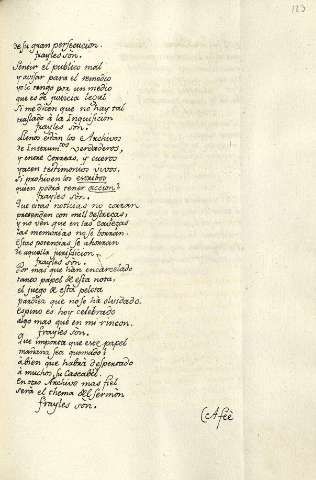 123
de su gran persecucion.
frayles son.
Sentir el publico mal
y avisar para el remedio
yo lo tengo por un medio
que es de justicia legal
Si me dicen que no hay tal
traslado à la Inquisicion
frayles son.
Llenos estàn los Archivos
de Instrum.tos verdaderos,
y entre Correas, y cueros
yacen testimonios vivos.
Si prohiven los
quien podrà tener accion?
frayles son.
Que otras noticias no
pretenden con mill destrezas;
y no vèn que en las cabezas
las memorias no se borràn.
Estas potencias se ahorran
de aquella
frayles son.
Por mas que han encarcelado
tanto papel de esta nota,
el juego de esta pelota
parece que no se hà olvidado.
espino es hoy celebrado
algo mas que en mi rincon.
frayles son.
Que importa que este papel
mañana sea quemado;
si bien que habrà despertado
à muchos, su Cascabel.
en otro Archivo mas fiel
serà el thema del sermòn
frayles sòn.